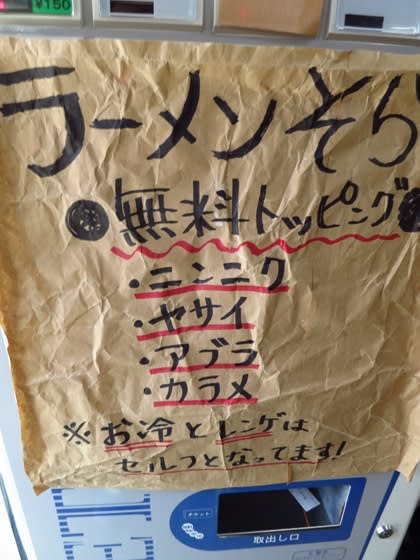 ¥150
ラーメンそら
●無料トッピング●
・ニンニク
・ヤサイ
・アブラ
・カラメ
※お冷とレンゲは
セルフとなってます!
チケット
取出し口